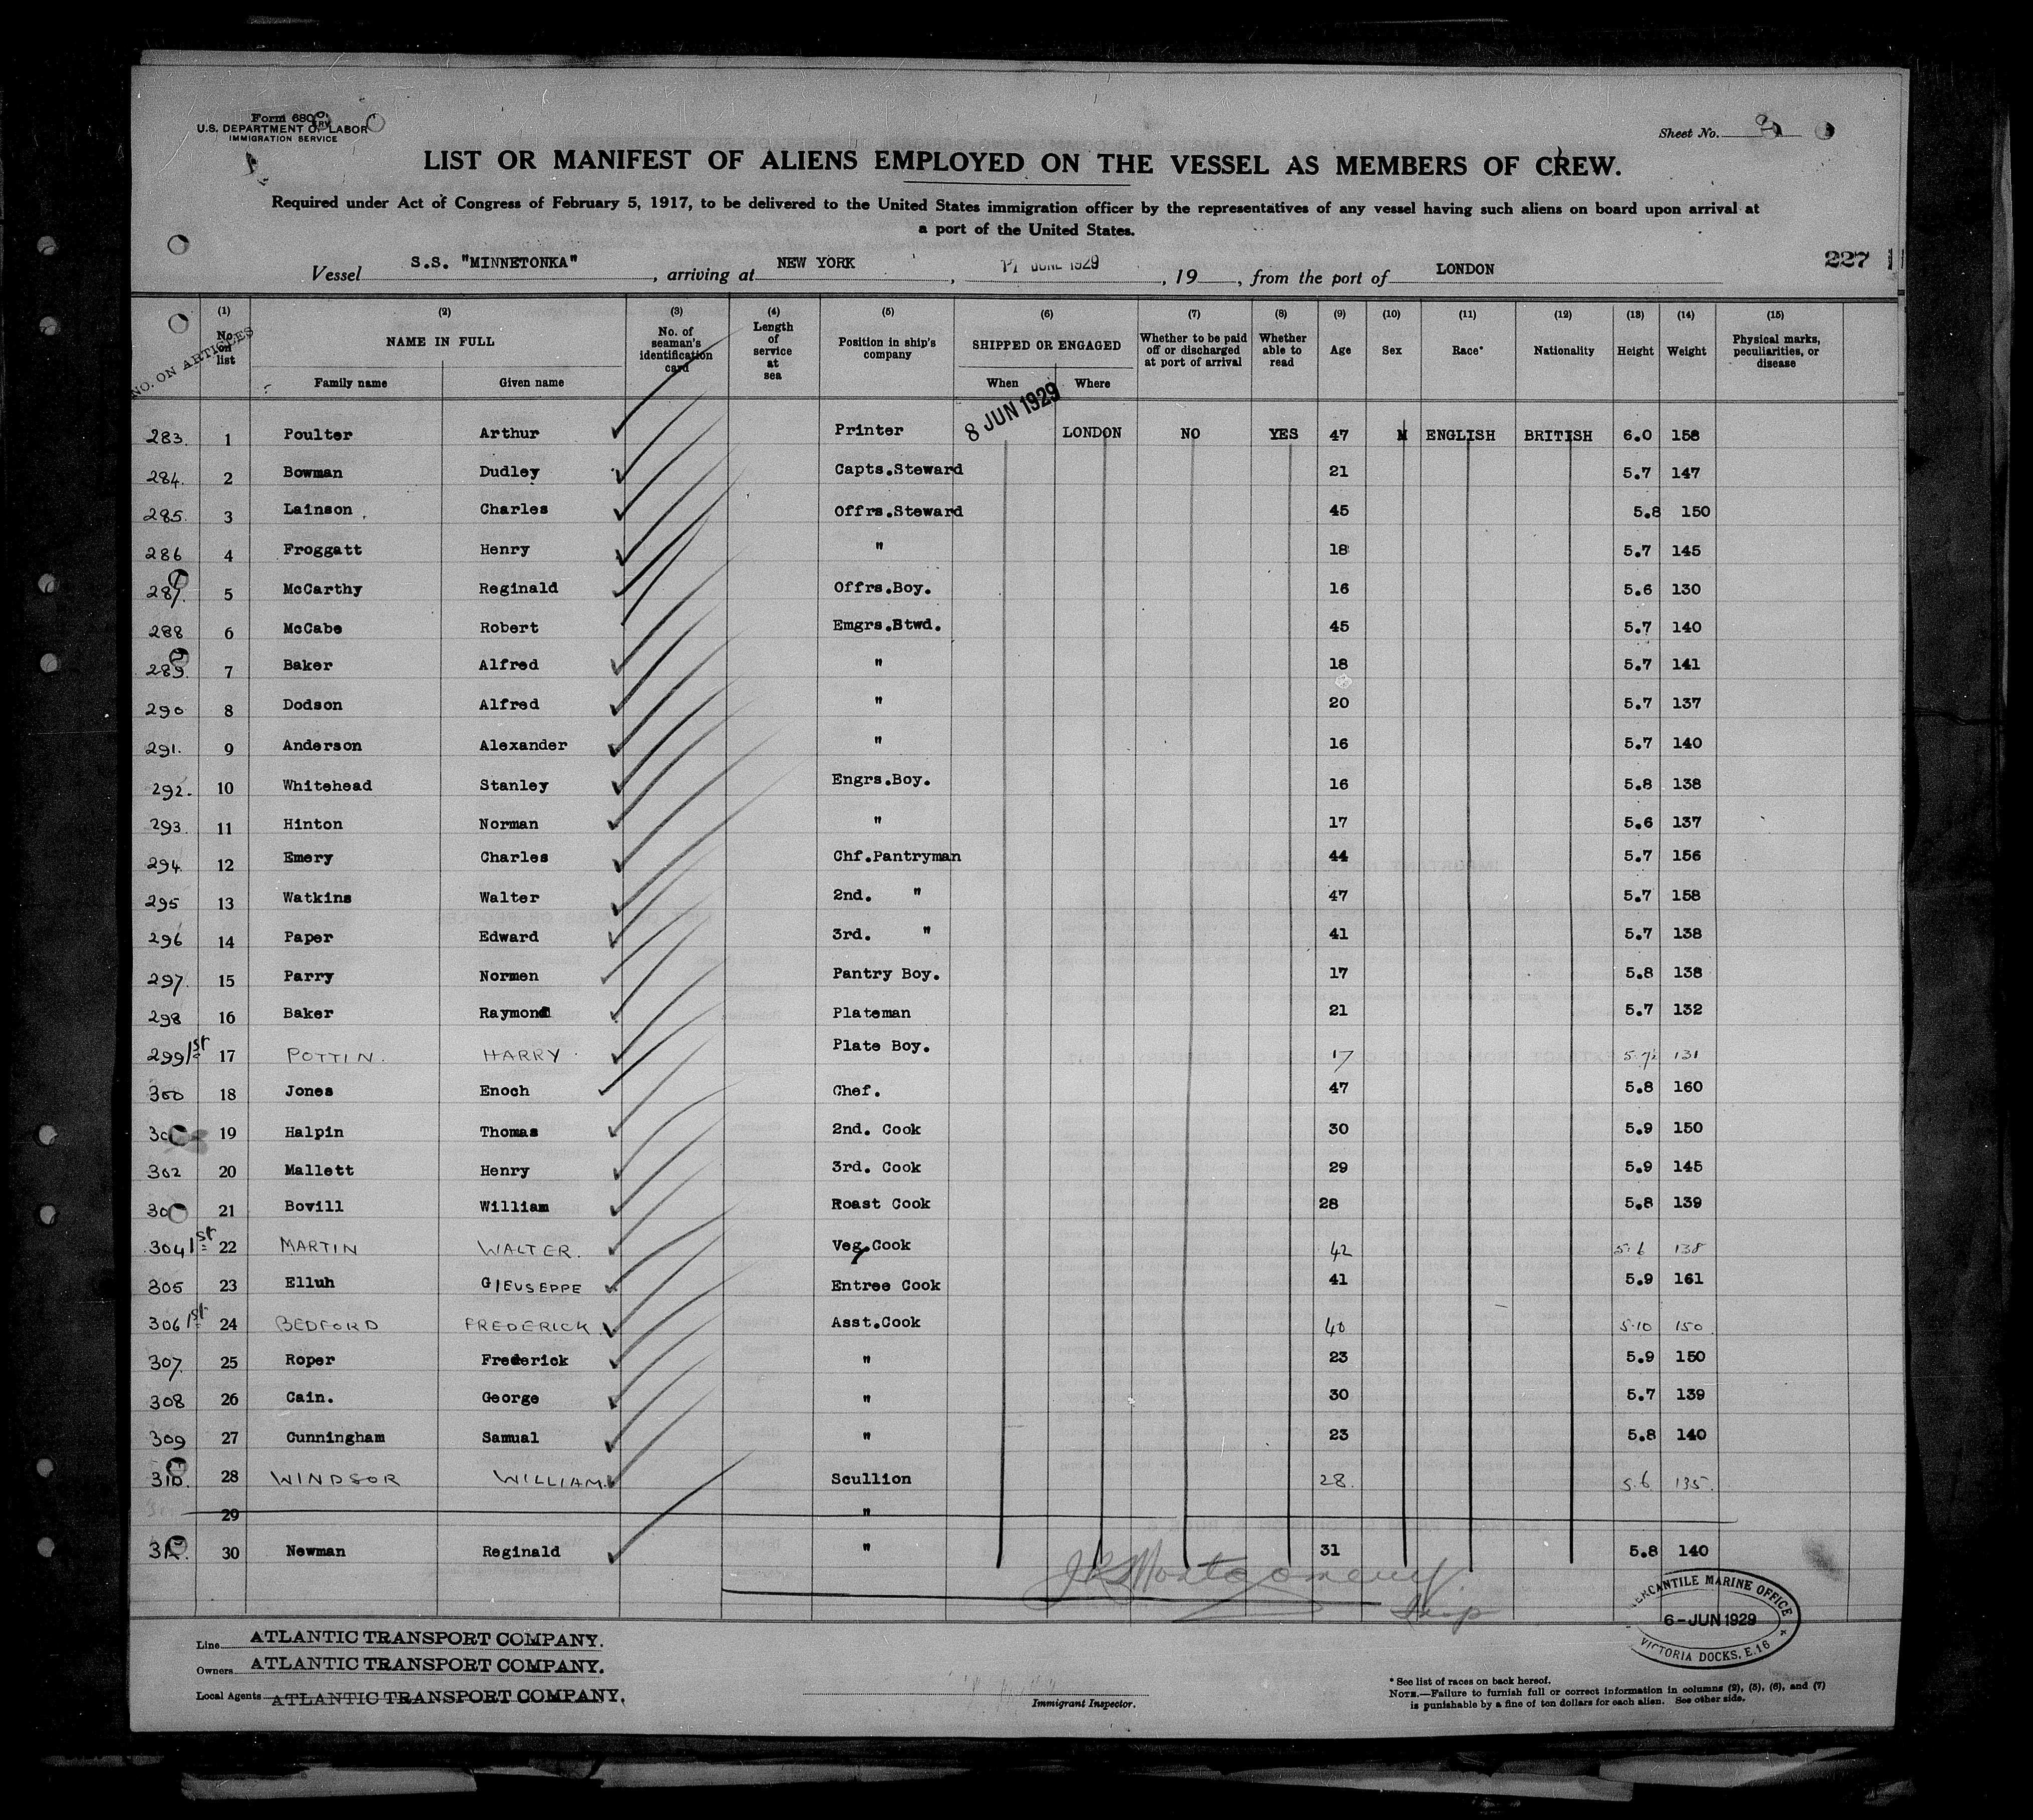 Form 680
U.S. DEPARTMENT OF LABOR
IMMIGRATION SERVICE
Sheet No.
LIST OR MANIFEST OF ALIENS EMPLOYED ON THE VESSEL AS MEMBERS OF CREW.
Required under Act of Congress of February 5, 1917, to be delivered to the United States immigration officer by the representatives of any vessel having such aliens on board upon arrival at
a port of the United States.
227
Vessel S.S. "MINNETONKA", arriving at NEW YORK, 17 JUNE 1929, 19, from the port of LONDON
NO. ON ARTICLES
(1) No. on list
(2) NAME IN FULL Family name Given name
(3) No. of seaman's identification card
(4) Length of service at sea
(5) Position in ship's company
(6) SHIPPED OR ENGAGED When Where
(7) Whether to be paid off or discharged at port of arrival
(8) Whether able to read
(9) Age
(10) Sex
(11) Race*
(12) Nationality
(13) Height
(14) Weight
(15) Physical marks, peculiarities, or disease
283. 1 Poulter Arthur Printer 8 JUN 1929 LONDON NO YES 47 M ENGLISH BRITISH 6.0 158
284. 2 Bowman Dudley Capts.Steward 21 5.7 147
285. 3 Lainson Charles Offrs.Steward 45 5.8 150
286 4 Froggatt Henry " 18 5.7 145
287. 5 McCarthy Reginald Offrs.Boy. 16 5.6 130
288 6 McCabe Robert Emgrs.Stwd. 45 5.7 140
289. 7 Baker Alfred " 18 5.7 141
290 8 Dodson Alfred " 20 5.7 137
291. 9 Anderson Alexander " 16 5.7 140
292. 10 Whitehead Stanley Engrs.Boy. 16 5.8 138
293. 11 Hinton Norman " 17 5.6 137
294. 12 Emery Charles Chf.Pantryman 44 5.7 156
295 13 Watkins Walter 2nd. " 47 5.7 158
296 14 Paper Edward 3rd. " 41 5.7 138
297. 15 Parry Normen Pantry Boy. 17 5.8 138
298 16 Baker Raymond Plateman 21 5.7 132
299 1st 17 POTTIN. HARRY. Plate Boy. 17 131
300 18 Jones Enoch Chef. 47 5.8 160
19 Halpin Thomas 2nd. Cook 30 5.9 150
302 20 Mallett Henry 3rd. Cook 29 5.9 145
21 Bovill William Roast Cook 28 5.8 139
304 1st 22 MARTIN WALTER. Veg.Cook 42 5.6 138
305 23 Elluh GIEUSEPPE Entree Cook 41 5.9 161
306 1st 24 BEDFORD FREDERICK. Asst.Cook 40 5.10 150.
307. 25 Roper Frederick " 23 5.9 150
308 26 Cain. George " 30 5.7 139
309 27 Cunningham Samual " 23 5.8 140
310. 28 WINDSOR WILLIAM. Scullion 28. 5.6 135.
29 "
30 Newman Reginald " 31 5.8 140
Line ATLANTIC TRANSPORT COMPANY.
Owners ATLANTIC TRANSPORT COMPANY.
Local Agents ATLANTIC TRANSPORT COMPANY.
Immigrant Inspector.
MERCANTILE MARINE OFFICE
6-JUN 1929
VICTORIA DOCKS, E.16
* See list of races on back hereof.
NOTE.—Failure to furnish full or correct information in columns (2), (5), (6), and (7)
is punishable by a fine of ten dollars for each alien. See other side.